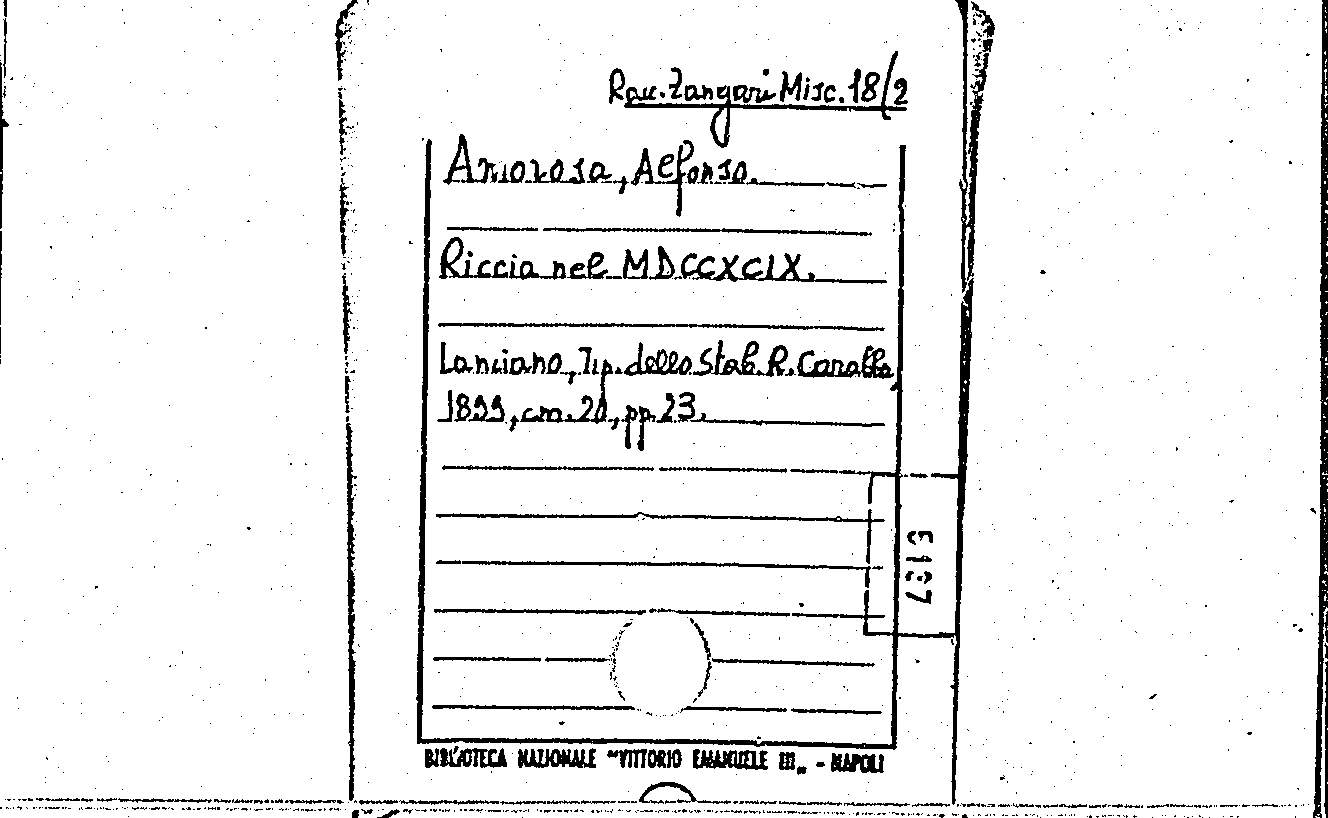 Rac. Zangari Misc. 18/2
Amorosa, Alfonso.
Riccia nel MDCCXCIX.
Lanciano, Tip. dello Stab. R. Carabba,
1899, cm. 20, pp. 23.
BIBLIOTECA NAZIONALE "VITTORIO EMANUELE III„ - NAPOLI